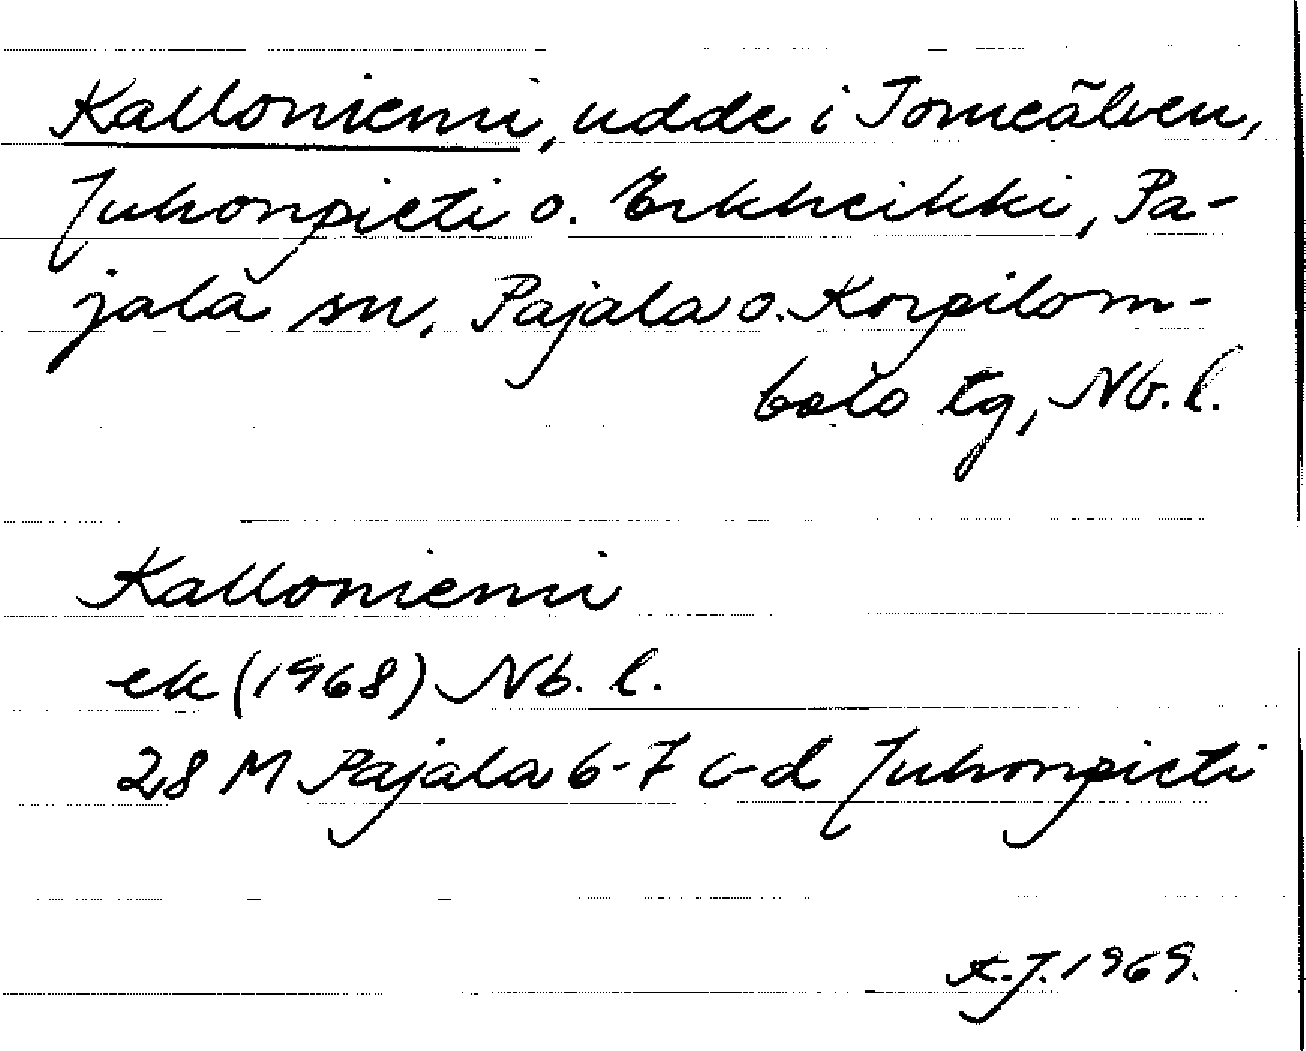 Kalloniemi, udde i Torneälven,
Juhonpieti o. Erkheikki, Pa-
jala sn, Pajala o. Korpilom-
bolo tg, Nb. l.
Kalloniemi
ek (1968) Nb. l.
28 M Pajala 6-7 c-d Juhonpieti
A.J. 1969.